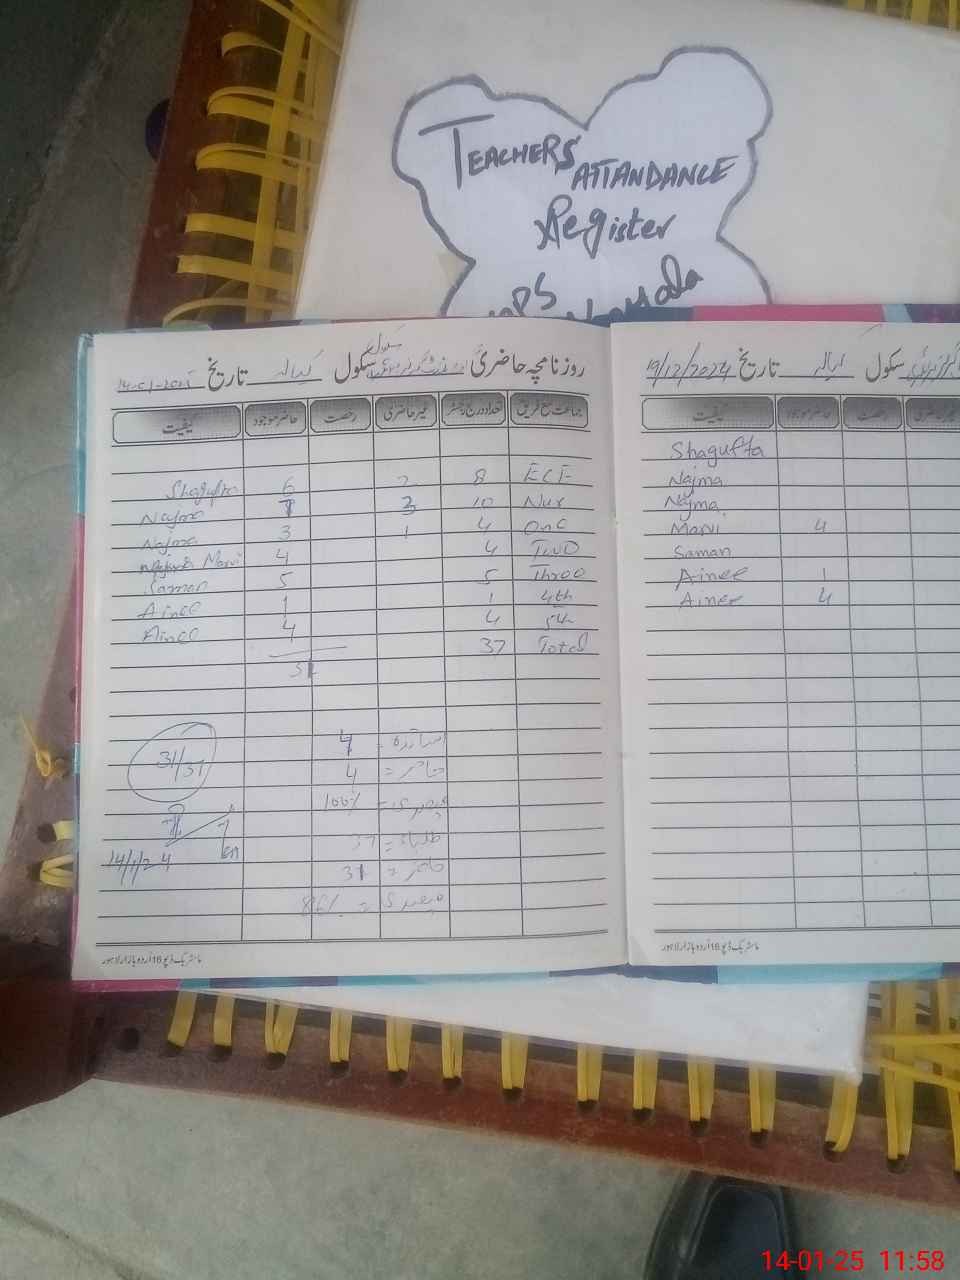 TEACHERS
ATTANDANCE
Register
روزنامچہ حاضری سکول تاریخ 14-01-2025
جماعت مع فریق تعداد درج رجسٹر غیر حاضری رخصت حاضر موجود کیفیت
ECE 8 2 6 Shagufta
Nur 10 3 7 Najma
One 4 1 3 Najma
Two 4 4 Marvi
Three 5 5 Saman
4th 1 1 Ainee
5th 4 4 Ainee
Total 37
31
4
حاضر = 4
100%
طلباء = 37
حاضر = 31
31/37
14/1/24
ماسٹر بک ڈپو 16 اردو بازار لاہور
سکول تاریخ 19/12/2024
رخصت حاضر موجود کیفیت
Shagufta
Najma
Najma
4 Marvi
Saman
1 Ainee
4 Ainee
ماسٹر بک ڈپو 16 اردو بازار لاہور
14-01-25 11:58